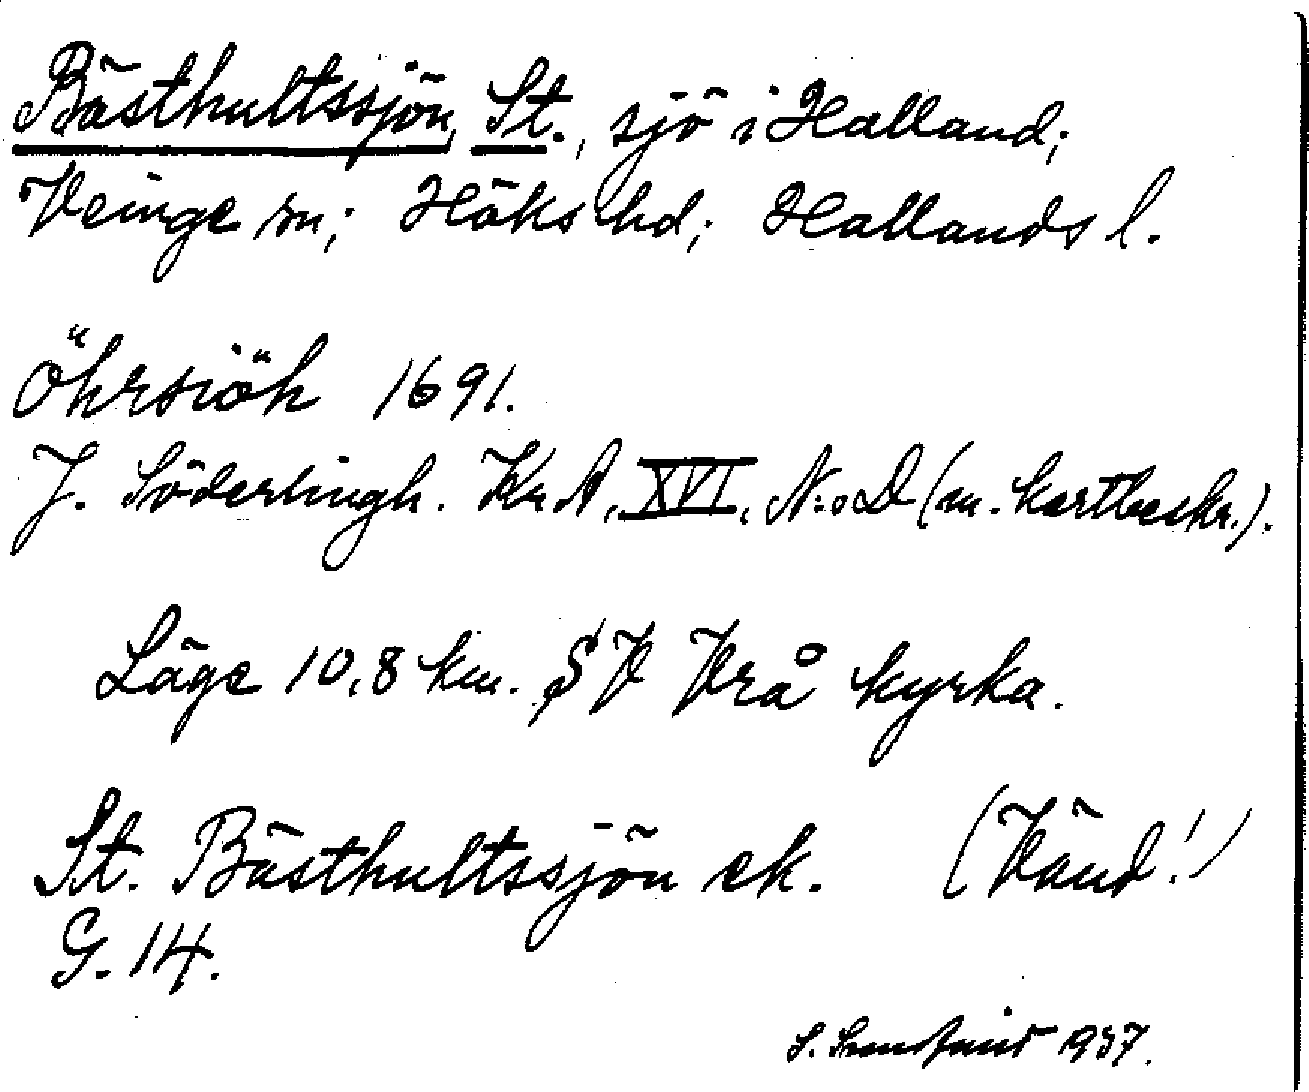 Bästhultssjön, St., sjö i Halland;
Veinge sn; Höks hd; Hallands l.
Öhrsiöh 1691.
J. Söderlingh. Kr. A, XVI, N:o D (m. kartbeskr.).
Läge 10,8 km. SV Vrå kyrka.
St. Bästhultssjön ek. (Vänd!)
G. 14.
S. 1937.